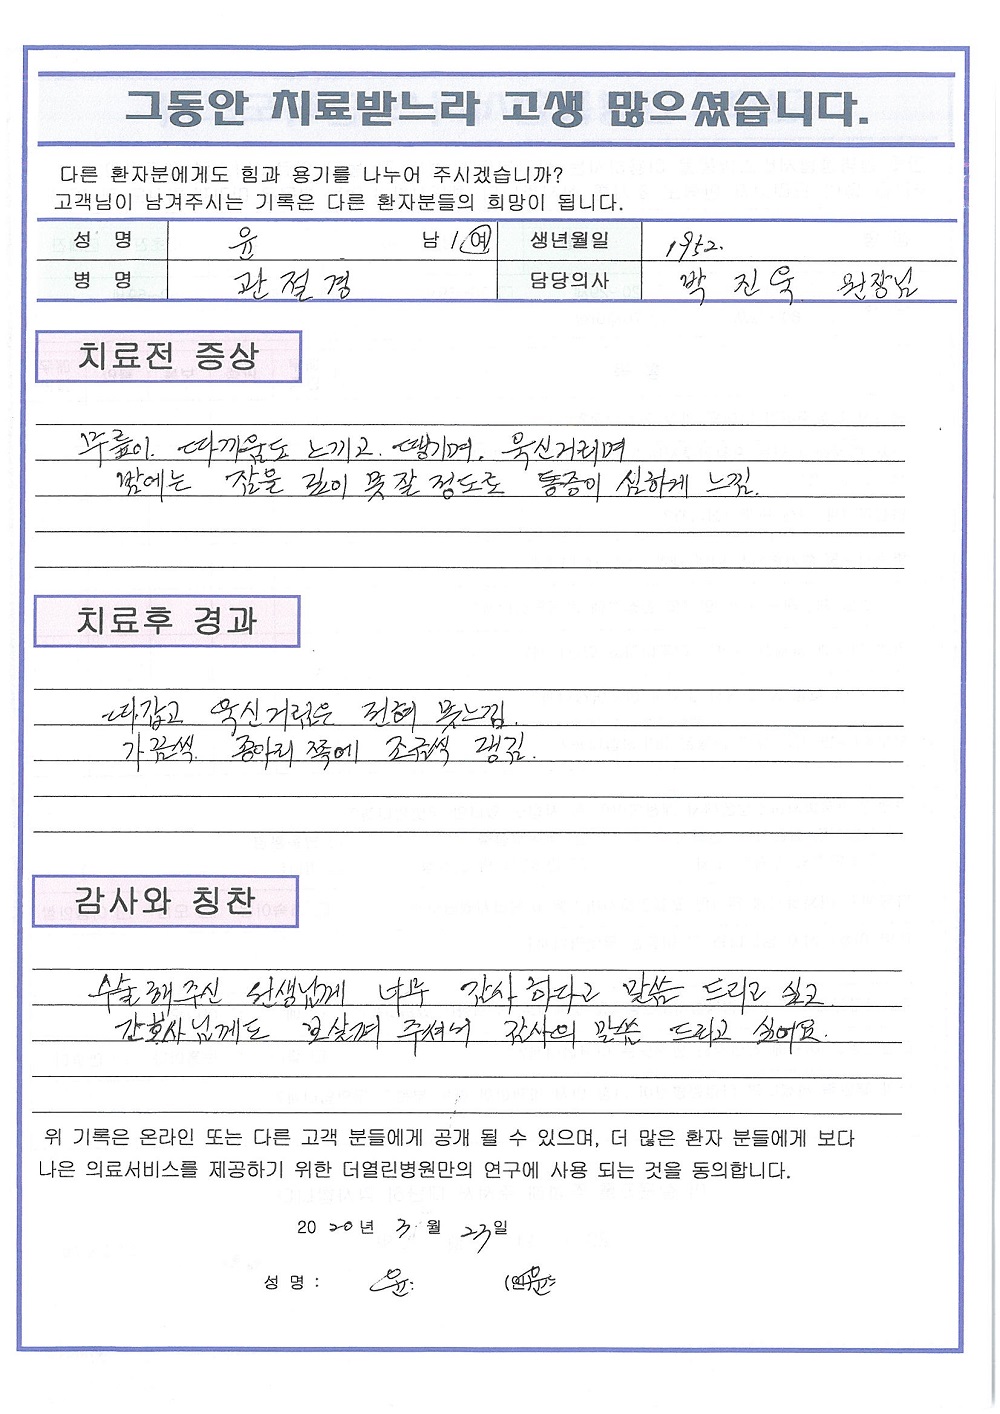 그동안 치료받느라 고생 많으셨습니다.
다른 환자분에게도 힘과 용기를 나누어 주시겠습니까?
고객님이 남겨주시는 기록은 다른 환자분들의 희망이 됩니다.
성 명 윤 남 / 여 생년월일 1952.
병 명 관절경 담당의사 박진욱 원장님
치료전 증상
무릎이. 따가움도 느끼고. 땡기며. 욱신거리며
밤에는 잠을 깊이 못잘정도로 통증이 심하게 느낌.
치료후 경과
따갑고 욱신거림은 전혀 못느낌.
가끔씩. 종아리쪽에 조금씩 땡김.
감사와 칭찬
수술해주신 선생님께 너무 감사하다고 말씀 드리고 싶고
간호사님께도 보살펴 주셔서 감사의 말씀 드리고 싶어요.
위 기록은 온라인 또는 다른 고객 분들에게 공개 될 수 있으며, 더 많은 환자 분들에게 보다
나은 의료서비스를 제공하기 위한 더열린병원만의 연구에 사용 되는 것을 동의합니다.
2020년 3월 23일
성 명 : 윤 (인) 윤